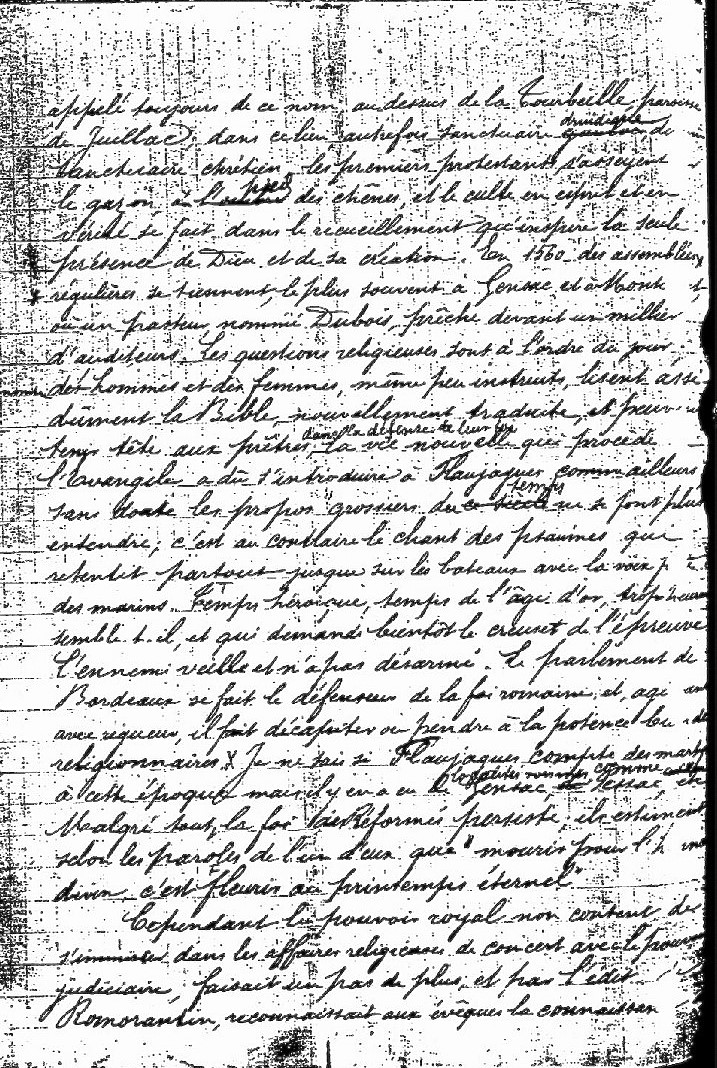 appelé toujours de ce nom, au dessus de la Tourbeille, paroisse
de Juillac; dans ce lieu, autrefois sanctuaire druidique
sanctuaire chrétien, les premiers protestants s'asseyent
le gazon, pied des chênes, et le culte en esprit et en
vérité se fait dans le recueillement qu'inspire la seule
présence de Dieu et de sa création. En 1560 des assemblées
régulières se tiennent, le plus souvent à Gensac et à Mont
où un pasteur, nommé Dubois, prêche devant un millier
d'auditeurs. Les questions religieuses sont à l'ordre du jour
des hommes et des femmes, même peu instruits, lisent assi
dûment la Bible, nouvellement traduite, et peuv
tenir tête aux prêtres dans la défense de leur foi. La vie nouvelle qui procède
l'Evangile a dû s'introduire à Flaujagues comme ailleurs
sans doute les propos grossiers du temps ne se font plus
entendre, c'est au contraire le chant des psaumes que
retentit partout jusque sur les bateaux avec la voix
des marins. Temps héroïque, temps de l'âge d'or, trop
semble-t-il, et qui demande bientôt le creuset de l'épreuve
L'ennemi veille et n'a pas désarmé. Le parlement de
Bordeaux se fait le défenseur de la foi romaine, et, agi
avec rigueur, il fait décapiter ou pendre à la potence
religionnaires. X Je ne sais si Flaujagues compte des mart
à cette époque mais il y en a eu comme Gensac, Pessac,
Malgré tout, la foi des Réformés persiste; ils estiment
selon les paroles de l'un d'eux que "mourir pour l'
divin, c'est fleurir au printemps éternel"
Cependant le pouvoir royal non content de
s'immiscer dans les affaires religieuses de concert avec le pouvoir
judiciaire, faisait un pas de plus, et par l'édit
Romorantin, reconnaissait aux évêques la connaissan